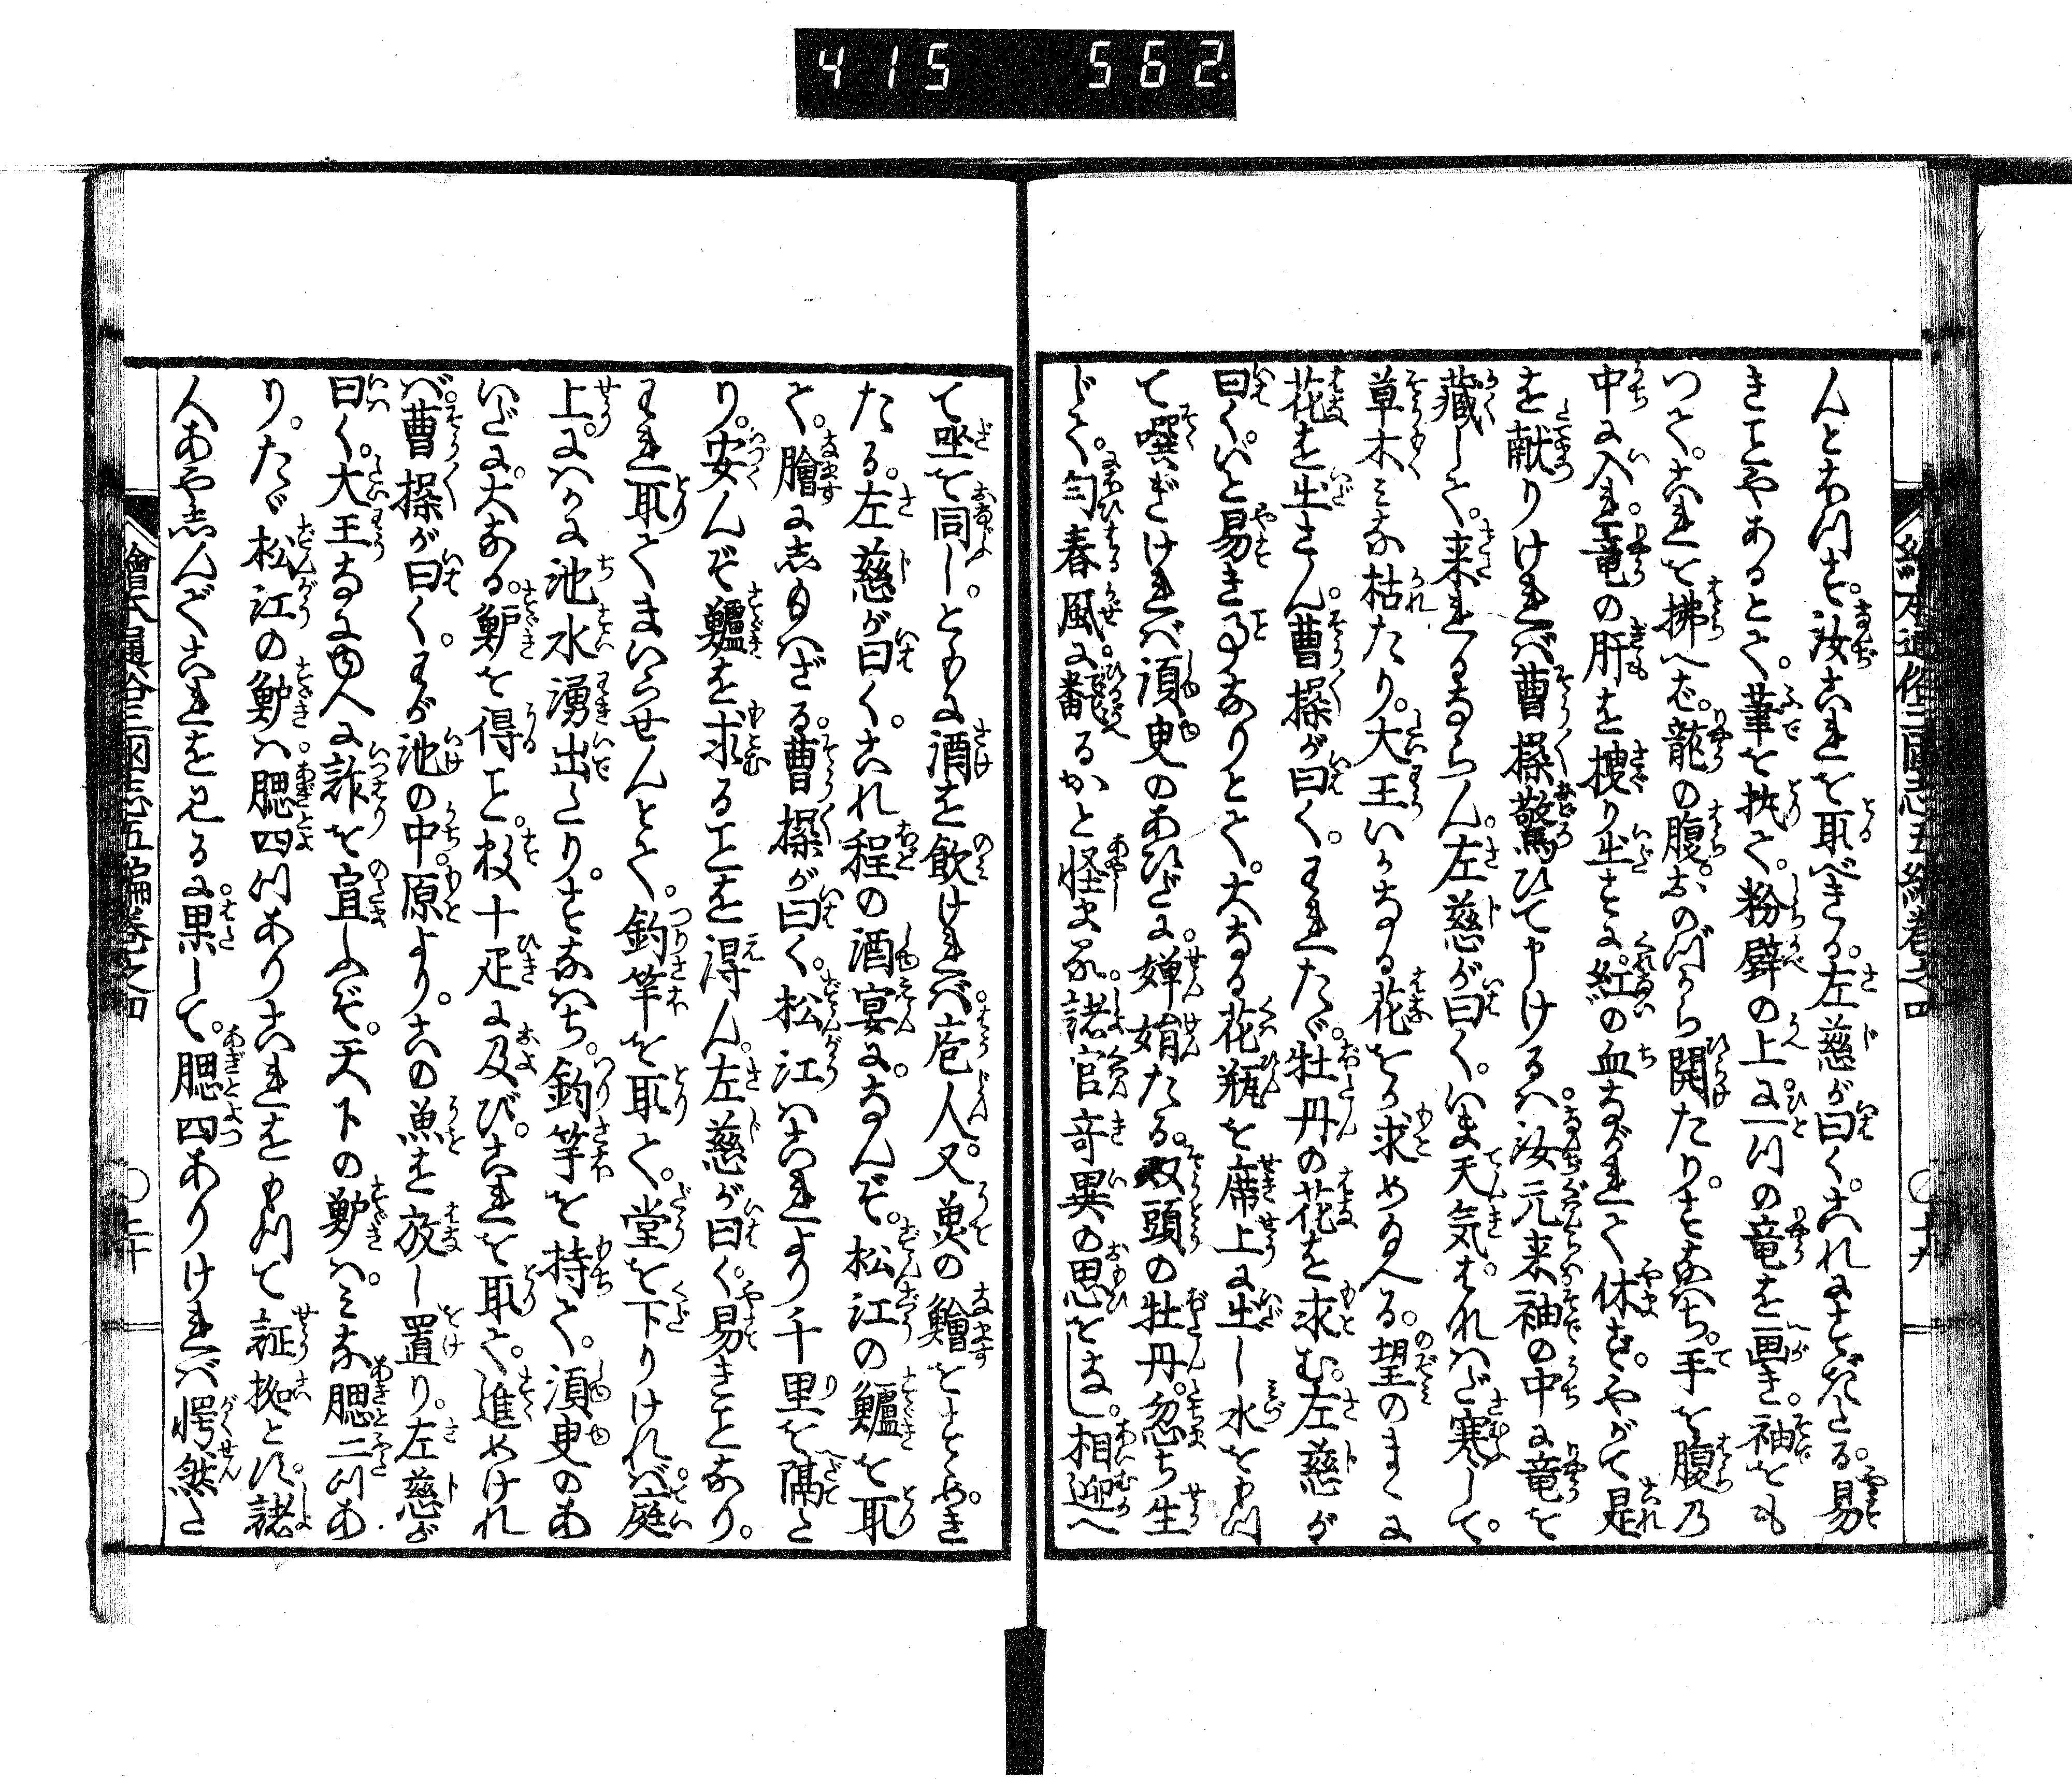 415 562
んとおもふ。汝これを取べきか。左慈が曰く。これまさざらる。易
きことやあるとて。筆を執て。粉壁の上に一つの竜を画き。袖をも
つて。これを拂へば。龍の腹。おのづから開たり。すなはち。手を腹乃
中に入れ。竜の肝を捜り出すに。紅の血ながれて休ず。やがて是
を献りければ曹操驚ひて申けるハ。汝元来袖の中に竜を
藏して。来れるならん。左慈が曰く。いま天気はなハだ寒して。
草木ミな枯たり。大王いかなる花をか求め給へる。望のまゝに
花を出さん。曹操が曰く。われたゞ。牡丹の花を求む。左慈が
曰く。いと易き事なりとて。大なる花瓶を席上に出し水をもつ
て噀ぎければ。須臾のあひだに。嬋娟たる。双頭の牡丹。忽ち生
じて。匂春風に飜るかと怪まる。諸官竒異の思をなし。相迎へ
繪本通俗三國志五編巻之四 〇十九
て坐を同し。ともに酒を飲ければ。庖人。又魚の鱠をとゝのへき
たる。左慈が曰く。これ程の酒宴に。なんぞ。松江の鱸を取
て。膾にしもハざる。曹操が曰く。松江ハこれより千里を隔た
り。安んぞ鱸を求ることを得ん。左慈が曰く。易きことなり。
われ取てまいらせんとて。釣竿を取て。堂を下りければ。庭
上にハかに池水湧出たり。すなハち。釣竿を持て。須臾のあ
いだに。大なる。鱸を得こと。数十疋に及び。これを取て。進めけれ
ば。曹操が曰く。わが池の中。原より。この魚を放し置り。左慈が
曰く。大王なにゆへに詐を宣ふぞ。天下の鱸ハ。ミな腮二つあ
り。たゞ松江の鱸ハ。腮四つありこれをもつて証拠とす。諸
人あやしんでこれを見るに。果して。腮四ありければ愕然と
繪本通俗三国志五編巻之四 〇二十